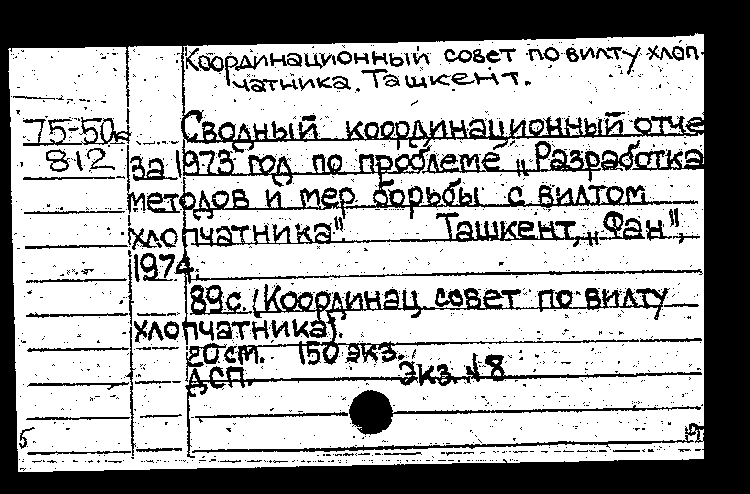 Координационный совет по вилту хлоп-
чатника. Ташкент.
75-50к Сводный координационный отче
812 за 1973 год по проблеме „Разработка
методов и мер борьбы с вилтом
хлопчатника". Ташкент, „Фан",
1974.
89с. (Координац. совет по вилту
хлопчатника).
20 см. 150 экз.
ДСП. Экз. № 8